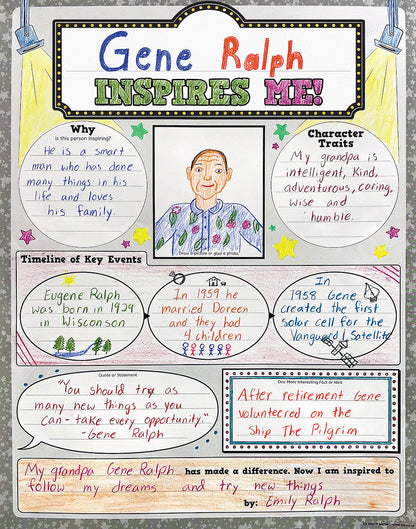 Gene Ralph
INSPIRES ME!
Why
is this person inspiring?
He is a smart
man who has done
many things in his
life and loves
his family.
Draw a picture or glue a photo
Character
Traits
My grandpa is
intelligent, Kind,
adventurous, caring,
wise and
humble.
Timeline of Key Events
Eugene Ralph
was born in 1929
in Wisconson
In 1959 he
married Doreen
and they had
4 children
In
1958 Gene
created the first
solar cell for the
Vanguard Satellite
Quote or Statement
"You should try as
many new things as you
can - take every opportunity."
- Gene Ralph
One More Interesting Fact or Idea
After retirement Gene
volunteered on the
ship The Pilgrim
My grandpa Gene Ralph has made a difference. Now I am inspired to
follow my dreams and try new things
by: Emily Ralph